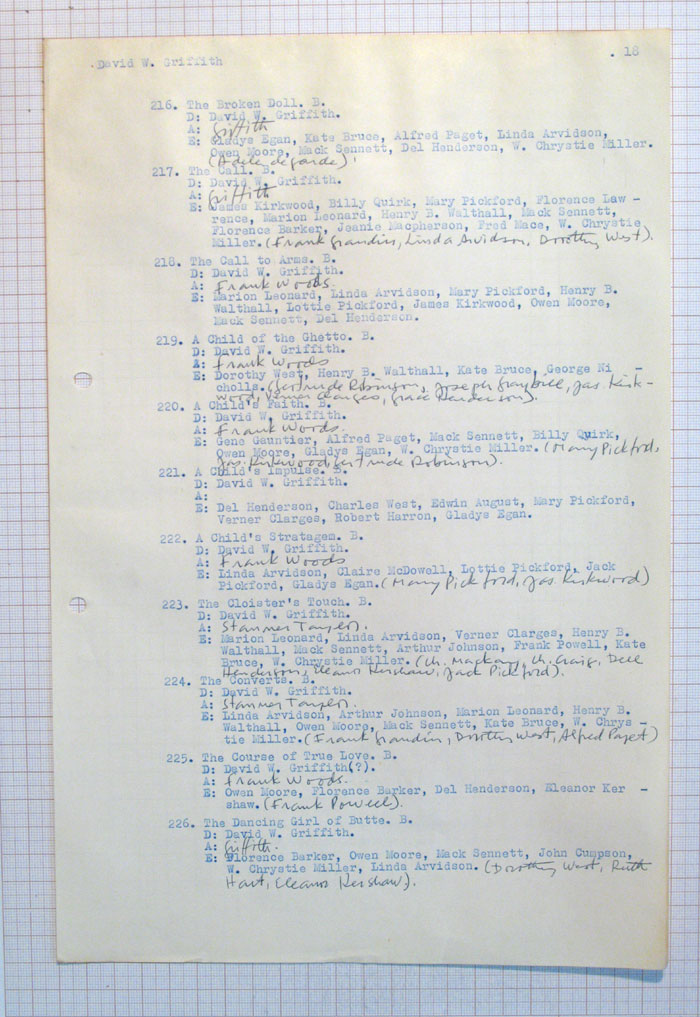 .David W. Griffith
. 18
216. The Broken Doll. B.
D: David W. Griffith.
A: Griffith
E: Gladys Egan, Kate Bruce, Alfred Paget, Linda Arvidson,
Owen Moore, Mack Sennett, Del Henderson, W. Chrystie Miller.
(Adele de garde).
217. The Call. B.
D: David W. Griffith.
A: Griffith
E: James Kirkwood, Billy Quirk, Mary Pickford, Florence Law -
rence, Marion Leonard, Henry B. Walthall, Mack Sennett,
Florence Barker, Jeanie Macpherson, Fred Mace, W. Chrystie
Miller. (Frank Grandin, Linda Arvidson, Dorothy West).
218. The Call to Arms. B.
D: David W. Griffith.
A: Frank Woods.
E: Marion Leonard, Linda Arvidson, Mary Pickford, Henry B.
Walthall, Lottie Pickford, James Kirkwood, Owen Moore,
Mack Sennett, Del Henderson.
219. A Child of the Ghetto. B.
D: David W. Griffith.
A: Frank Woods
E: Dorothy West, Henry B. Walthall, Kate Bruce, George Ni -
cholls. (Gertrude Robinson, Joseph Graybill, Jas. Kirk-
wood, Verner Clarges, Grace Henderson).
220. A Child's Faith. B.
D: David W. Griffith.
A: Frank Woods.
E: Gene Gauntier, Alfred Paget, Mack Sennett, Billy Quirk,
Owen Moore, Gladys Egan, W. Chrystie Miller. (Mary Pickford,
Jas. Kirkwood, Gertrude Robinson).
221. A Child's Impulse. B.
D: David W. Griffith.
A:
E: Del Henderson, Charles West, Edwin August, Mary Pickford,
Verner Clarges, Robert Harron, Gladys Egan.
222. A Child's Stratagem. B.
D: David W. Griffith.
A: Frank Woods
E: Linda Arvidson, Claire McDowell, Lottie Pickford, Jack
Pickford, Gladys Egan. (Mary Pickford, Jas. Kirkwood)
223. The Cloister's Touch. B.
D: David W. Griffith.
A: Stanner Taylor.
E: Marion Leonard, Linda Arvidson, Verner Clarges, Henry B.
Walthall, Mack Sennett, Arthur Johnson, Frank Powell, Kate
Bruce, W. Chrystie Miller. (Ch. Mackay, Ch. Craig, Dell
Henderson, Eleanor Kershaw, Jack Pickford).
224. The Converts. B.
D: David W. Griffith.
A: Stanner Taylor.
E: Linda Arvidson, Arthur Johnson, Marion Leonard, Henry B.
Walthall, Owen Moore, Mack Sennett, Kate Bruce, W. Chrys -
tie Miller. (Frank Grandin, Dorothy West, Alfred Paget)
225. The Course of True Love. B.
D: David W. Griffith(?).
A: Frank Woods.
E: Owen Moore, Florence Barker, Del Henderson, Eleanor Ker -
shaw. (Frank Powell).
226. The Dancing Girl of Butte. B.
D: David W. Griffith.
A: Griffith.
E: Florence Barker, Owen Moore, Mack Sennett, John Cumpson,
W. Chrystie Miller, Linda Arvidson. (Dorothy West, Ruth
Hart, Eleanor Kershaw).